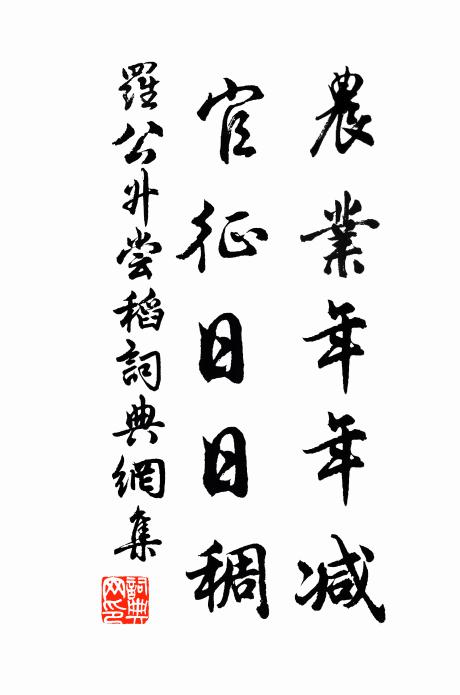 農業年年減
官征日日稠
羅公升嘗稻詞典網集
詞典網印